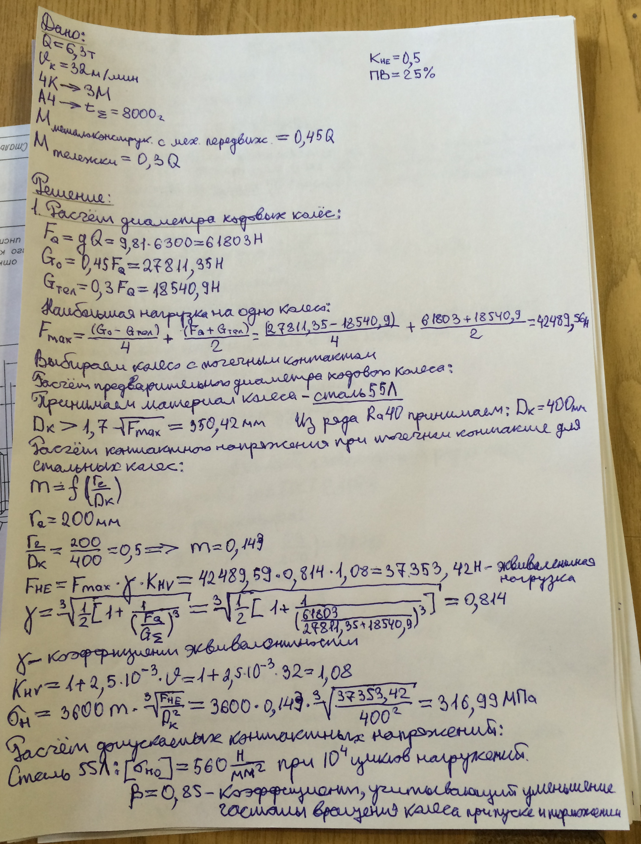 Дано:
Q=6,3т
K_HE=0,5
ϑ_к=32м/мин
ПВ=25%
4К→3М
А4→t_Σ=8000ч
M_металлоконструк. с мех. передвиж.=0,45Q
M_тележки=0,3Q
Решение:
1. Расчёт диаметра ходовых колёс:
F_Q=gQ=9,81·6300=61803Н
G_0=0,45F_Q=27811,35Н
G_тел=0,3F_Q=18540,9Н
Наибольшая нагрузка на одно колесо:
F_max=(G_0-G_тел)/4+(F_Q+G_тел)/2=(27811,35-18540,9)/4+(61803+18540,9)/2=42489,56Н
Выбираем колесо с точечным контактом
Расчёт предварительного диаметра ходового колеса:
Принимаем материал колеса-сталь 55Л
D_к>1,7√F_max=350,42мм Из ряда Ra40 принимаем: D_к=400мм
Расчёт контактного напряжения при точечном контакте для
стальных колес:
m=f(r_2/D_к)
r_2=200мм
r_2/D_к=200/400=0,5=> m=0,149
F_HE=F_max·γ·K_HV=42489,59·0,814·1,08=37353,42Н-эквивалентная
нагрузка
γ=∛(1/2[1+1/(F_Q/G_Σ)^3])=∛(1/2[1+1/(61803/(27811,35+18540,9))^3])=0,814
γ-коэффициент эквивалентности
K_HV=1+2,5·10^-3·ϑ=1+2,5·10^-3·32=1,08
σ_H=3600m·∛(F_HE/D_к^2)=3600·0,149·∛(37353,42/400^2)=316,99МПа
Расчёт допускаемых контактных напряжений:
Сталь 55Л:[σ_H0]=560 Н/мм^2 при 10^4 циклов нагружений.
β=0,85-коэффициент, учитывающий уменьшение
частоты вращения колеса при пуске и торможении